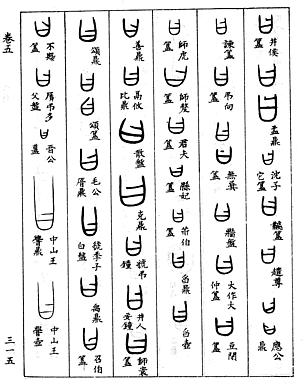 井侯簋
盂鼎
沈子它簋
簋
趞尊
應公鼎
諫簋
弔向簋
無㠱簋
牆盤
大作大仲簋
豆閉簋
師虎簋
師嫠簋
君夫簋
縣妃簋
伯
曶鼎
曶壺
善鼎
鬲攸比鼎
散盤
克鼎
虢弔鐘
井人妄鐘
師㝨簋
頌鼎
頌簋
毛公鼎
虢季子白盤
禹鼎
召伯簋
不簋
弔多父盤
晉公
中山王鼎
中山王壺
卷五
三一五